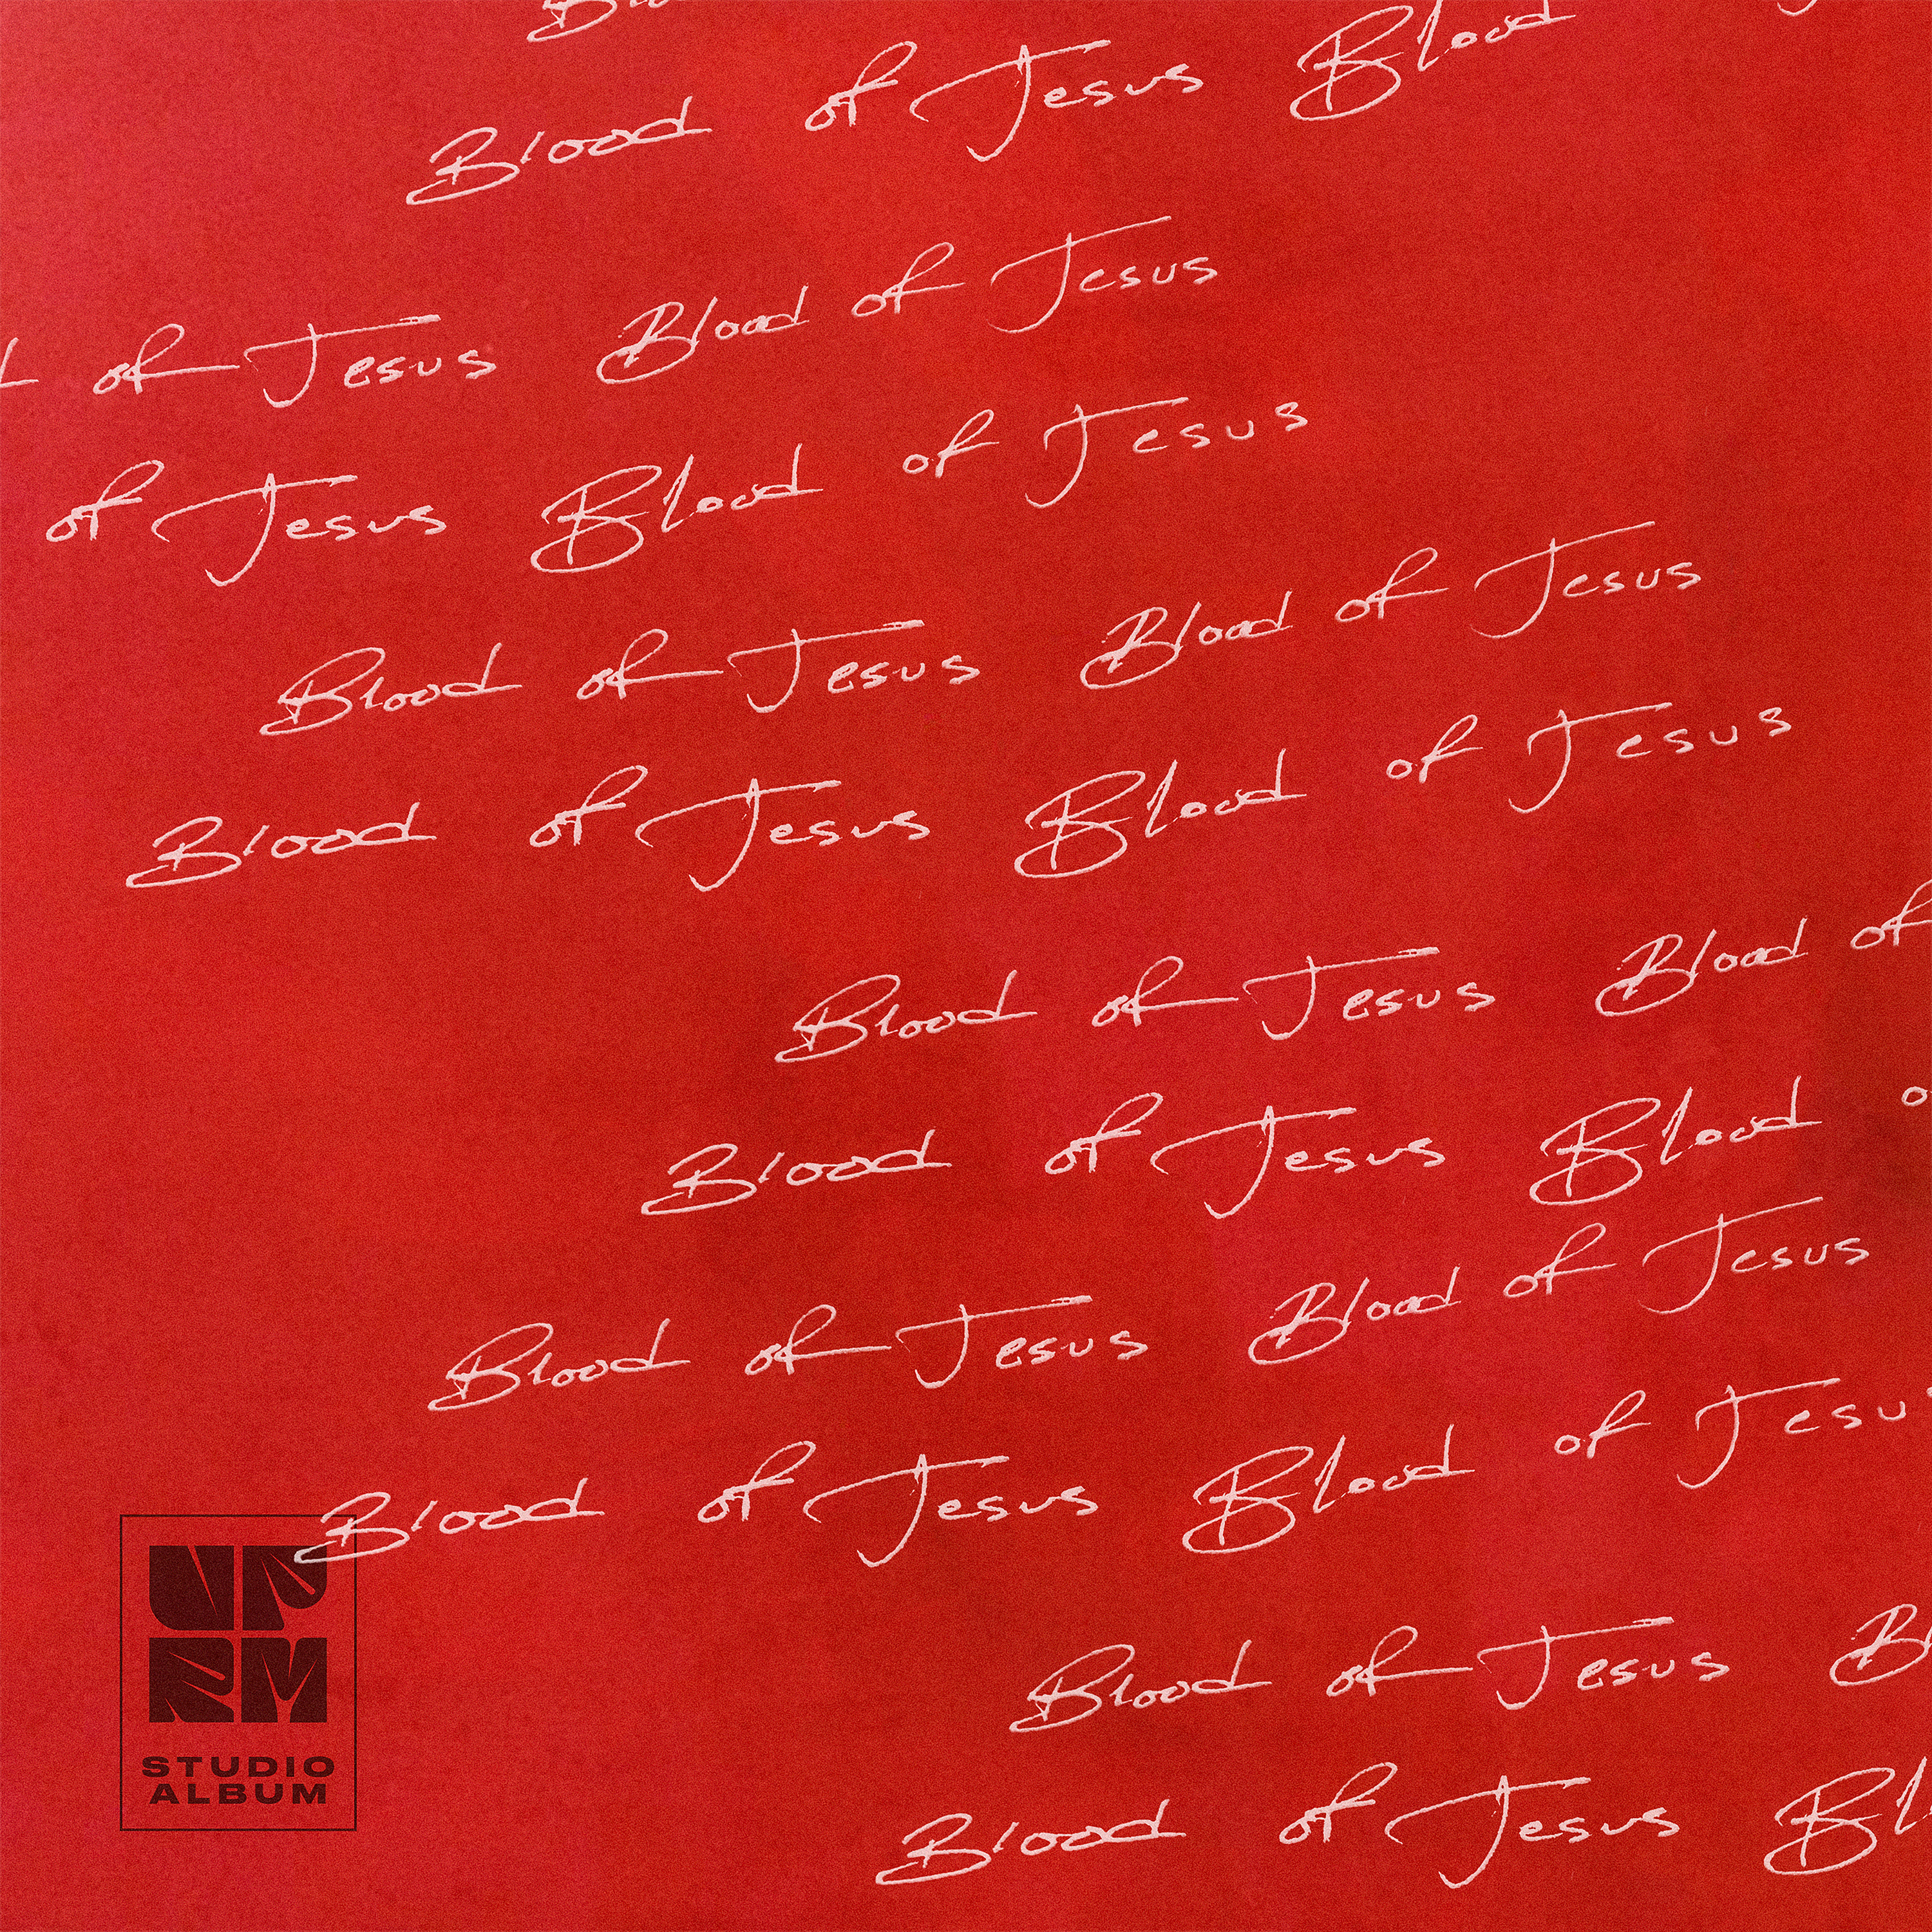 Blood of Jesus Blood
of Jesus Blood of Jesus
of Jesus Blood of Jesus
Blood of Jesus Blood of Jesus
Blood of Jesus Blood of Jesus
Blood of Jesus Blood of
Blood of Jesus Blood
Blood of Jesus Blood of Jesus
Blood of Jesus Blood of Jesu
UPRM
STUDIO
ALBUM
Blood of Jesus
Blood of Jesus